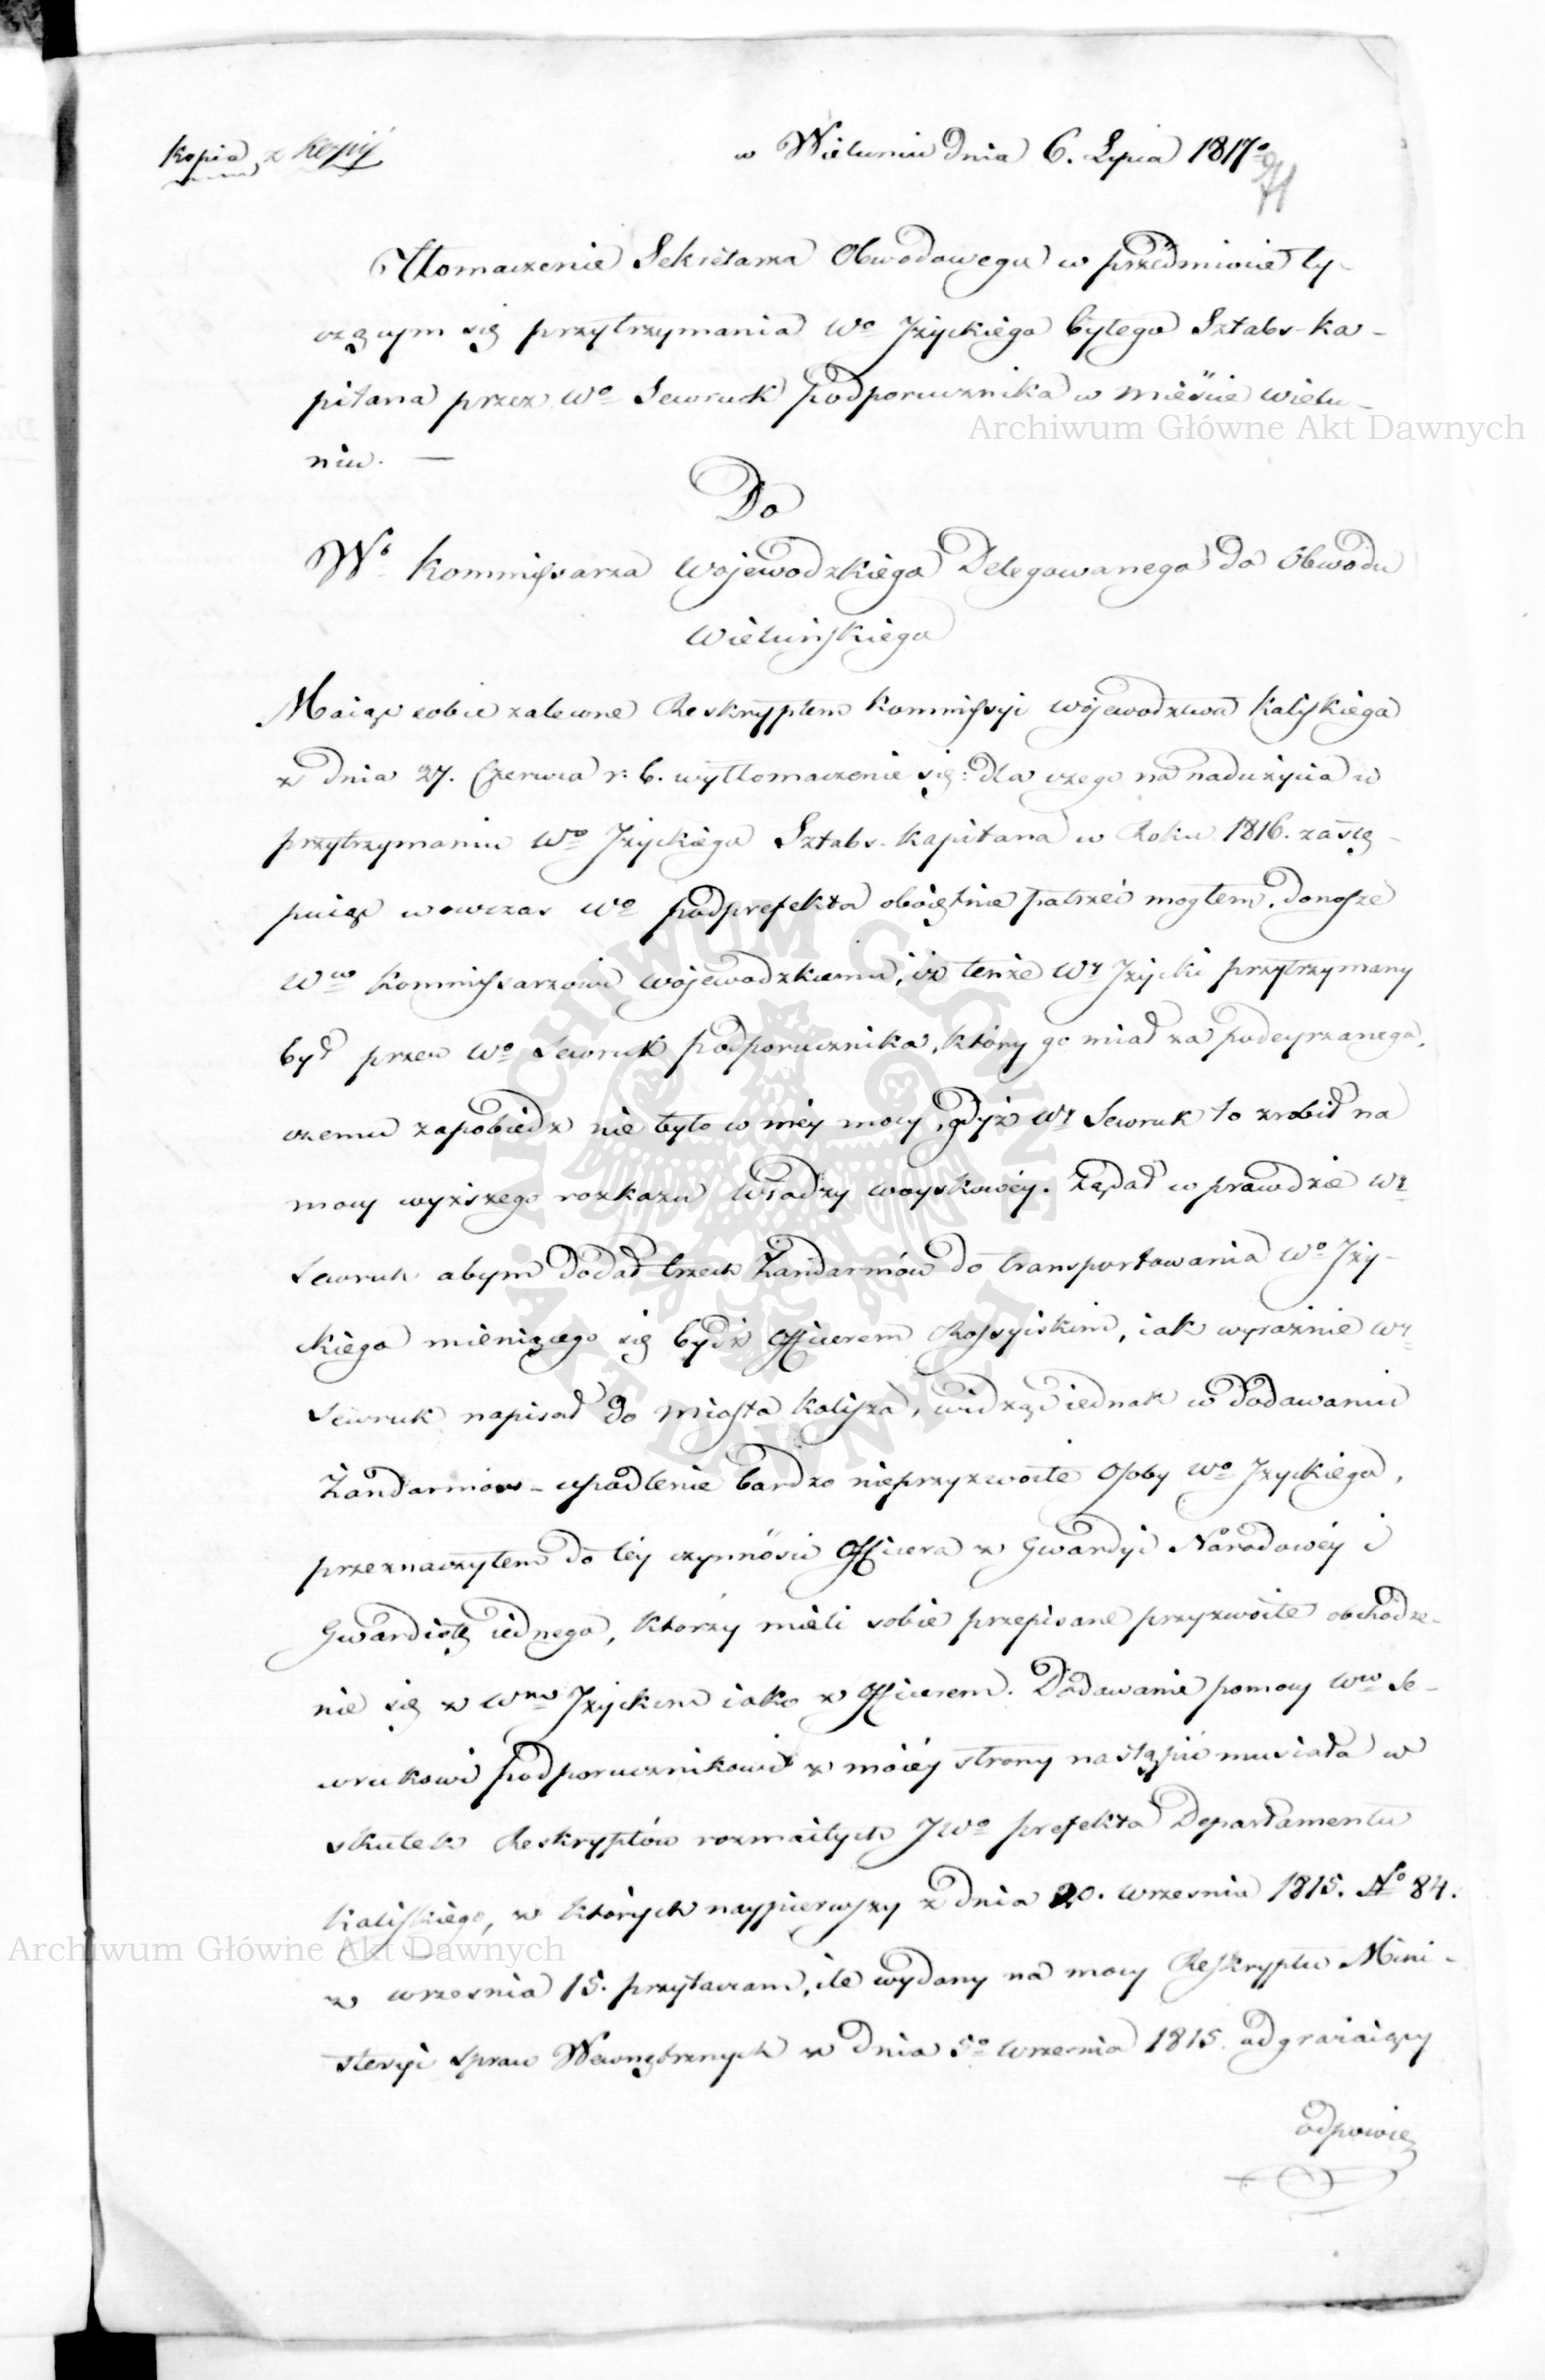 Kopia z Kopij
w Wieluniu dnia 6. Lipca 1817o
Tłomaczenie Sekretarza Obwodowego w przedmiocie ty-
czącym się przytrzymania Wo Jżyckiego byłego Sztabs-ka-
pitana przez Wo Sewruk podporucznika w mieście Wielu-
niu. —
Archiwum Główne Akt Dawnych
Do
Wo Kommissarza Wojewodzkiego Delegowanego do Obwodu
Wieluńskiego
Maiąc sobie zalecone Reskryptem Kommissyi Wojewodztwa Kaliskiego
z dnia 27. Czerwca r: b. wytłomaczenie się: dla czego na nadużycia w
przytrzymaniu Wo Jżyckiego Sztabs. Kapitana w Roku 1816. zastę-
puiąc wowczas Wo podprefekta oboiętnie patrzeć mogłem, donoszę
Wwo Kommissarzowi Wojewodzkiemu, iż tenże Wy Jżycki przytrzymany
był przez Wo Sewruk podporucznika, który go miał za podeyrzanego,
czemu zapobiedz nie było w mey mocy, gdyż Wy Sewruk to zrobił na
mocy wyższego rozkazu Władzy woyskowéy. Żądał w prawdzie Wy
Sewruk abym dodał trzech Żandarmów do transportowania Wo Jży-
ckiego mieniącego się bydź Officerem Rossyiskim, iak wyraźnie Wy
Sewruk napisał do Miasta Kalisza, widząc iednak w dodawaniu
Żandarmów - upodlenie bardzo nieprzyzwoite Osoby Wo Jżyckiego,
przeznaczyłem do téy czynności Officera z Gwardyi Narodowéy i
Gwardistę iednego, którzy mieli sobie przepisane przyzwoite obchodze-
nie się z Wym Jżyckim iako z Officerem. Dodawanie pomocy Wwi Se-
wrukowi podporucznikowi z moiéy strony nastąpić musiała w
skutek Reskryptów rozmaitych JWo prefekta Departamentu
Kaliskiego, z których naypierwszy z dnia 20. Września 1815. No 84.
Archiwum Główne Akt Dawnych
z września 15. przytaczam, ile wydany na mocy Reskryptu Mini-
steryi Spraw Wewnętrznych z dnia 5o Września 1815. odgrażaiący
odpowie
ARCHIWUM GŁÓWNE AKT DAWNYCH